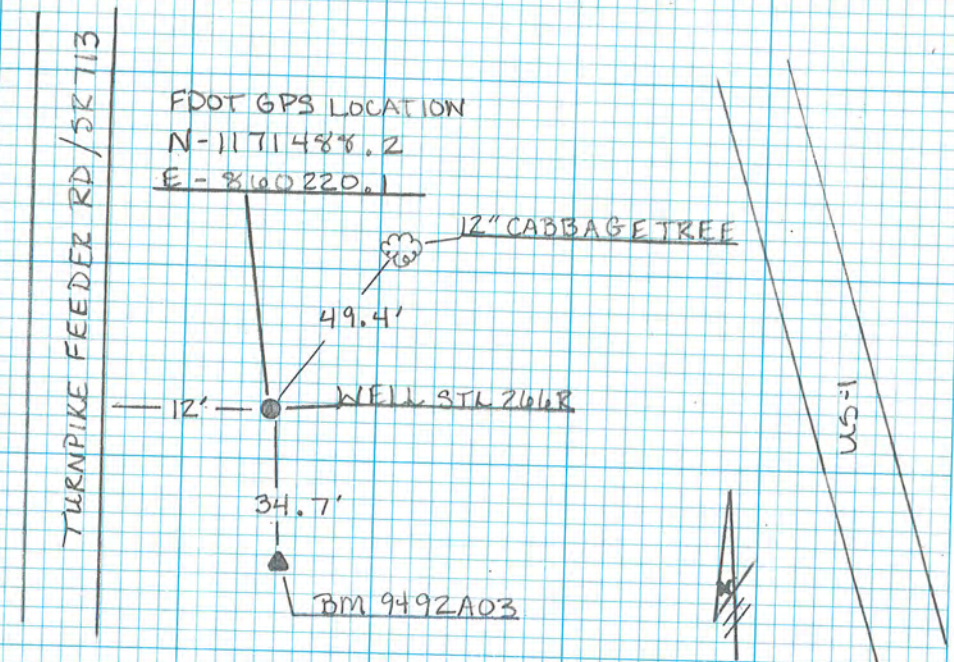 TURNPIKE FEEDER RD/SR 713
FDOT GPS LOCATION
N-1171488.2
E-860220.1
12" CABBAGE TREE
49.4'
12'
WELL STL 266R
US-1
34.7'
BM 9492A03